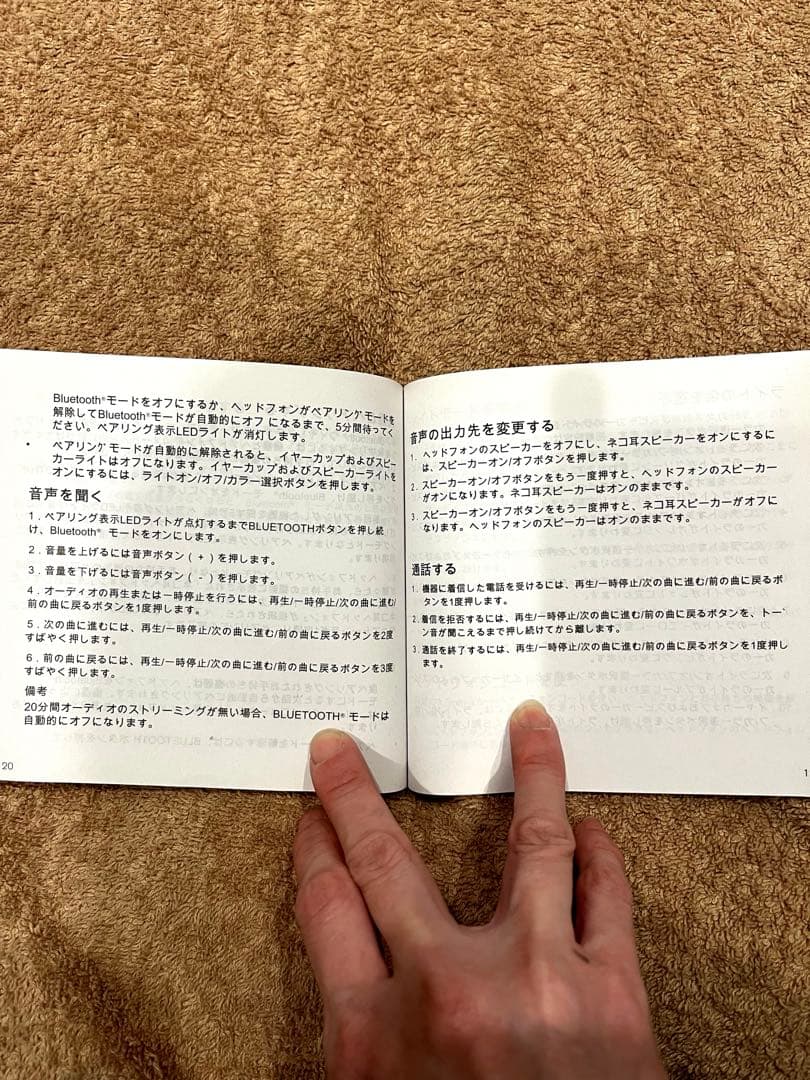 Bluetooth®モードをオフにするか、ヘッドフォンがペアリングモードを
解除してBluetooth®モードが自動的にオフ になるまで、5分間待ってく
ださい。ペアリング表示LEDライトが消灯します。
• ペアリングモードが自動的に解除されると、イヤーカップおよびスピー
カーライトはオフになります。イヤーカップおよびスピーカーライトを
オンにするには、ライトオン/オフ/カラー選択ボタンを押します。
音声を聞く
1．ペアリング表示LEDライトが点灯するまでBLUETOOTHボタンを押し続
け、Bluetooth® モードをオンにします。
2．音量を上げるには音声ボタン（+）を押します。
3．音量を下げるには音声ボタン（-）を押します。
4．オーディオの再生または一時停止を行うには、再生/一時停止/次の曲に進む/
前の曲に戻るボタンを1度押します。
5．次の曲に進むには、再生/一時停止/次の曲に進む/前の曲に戻るボタンを2度
すばやく押します。
6．前の曲に戻るには、再生/一時停止/次の曲に進む/前の曲に戻るボタンを3度
すばやく押します。
備考
20分間オーディオのストリーミングが無い場合、BLUETOOTH® モードは
自動的にオフになります。
20
音声の出力先を変更する
1. ヘッドフォンのスピーカーをオフにし、ネコ耳スピーカーをオンにするに
は、スピーカーオン/オフボタンを押します。
2. スピーカーオン/オフボタンをもう一度押すと、ヘッドフォンのスピーカー
がオンになります。ネコ耳スピーカーはオンのままです。
3. スピーカーオン/オフボタンをもう一度押すと、ネコ耳スピーカーがオフに
なります。ヘッドフォンのスピーカーはオンのままです。
通話する
1. 機器に着信した電話を受けるには、再生/一時停止/次の曲に進む/前の曲に戻るボ
タンを1度押します。
2. 着信を拒否するには、再生/一時停止/次の曲に進む/前の曲に戻るボタンを、トー
ン音が聞こえるまで押し続けてから離します。
3. 通話を終了するには、再生/一時停止/次の曲に進む/前の曲に戻るボタンを1度押し
ます。